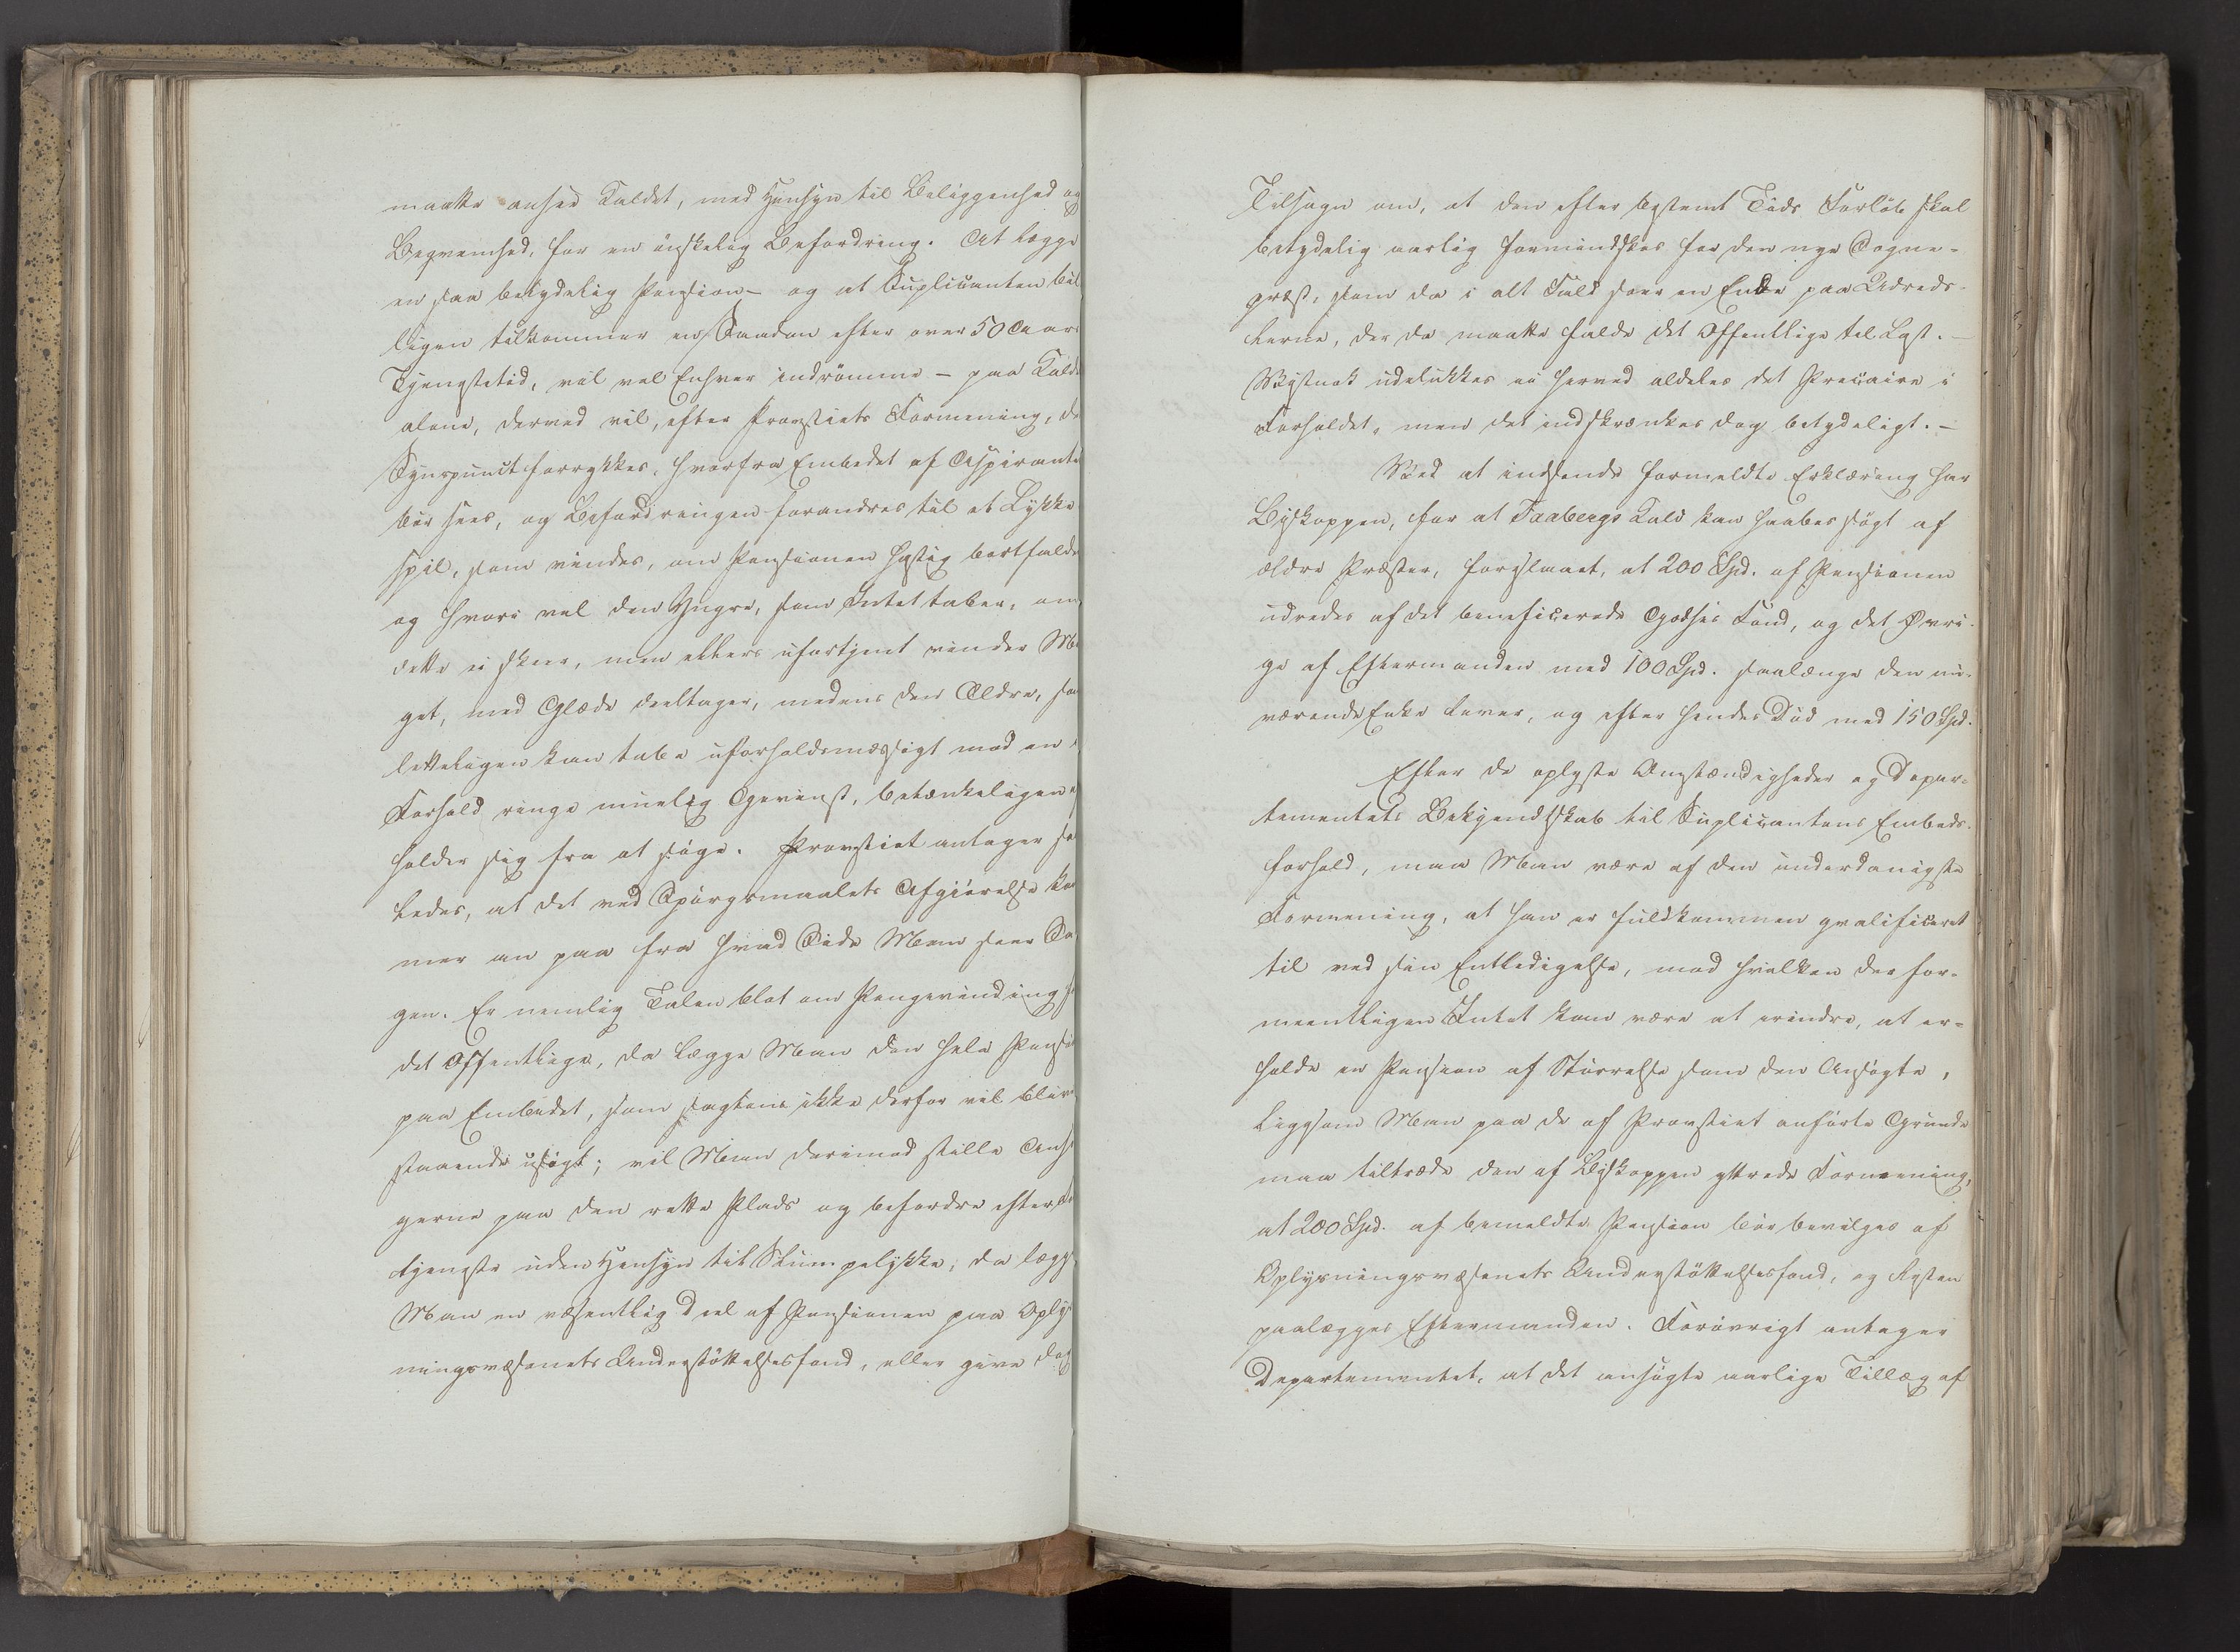 maatte ansee Kaldet, med Hensyn til Beliggenhed og
Beqvemhed, for en ønskelig Befordring. At lægge
en saa betydelig Pension – og at Suplicanten bil-
ligen tilkommer en Saadan efter over 50 Aars
Tjenstetid, vil vel Enhver indrømme – paa Kaldet
alene, derved vil, efter Provstiets Formening, det
Synspunct forrykkes, hvorfra Embedet af Aspiranten
bør sees, og Befordringen forandres til et Lykke-
spil, som vindes, om Pensionen hastig bortfalder
og hvori vel den Yngre, som Intet taber, om
dette ei skeer, men ellers ufortjent vinder Me-
get, med Glæde deeltager, medens den Ældre, som
letteligen kan tabe uforholdsmæssigt mod en i
Forhold ringe muelig Gevinst, betænkeligen
holder sig fra at søge. Provstiet antager saa-
ledes, at det ved Spørgsmaalets Afgjørelse kom-
mer an paa fra hvad Side Man seer Sa-
gen. Er nemlig Talen blot om Pengevinding for
det Offentlige, da lægge Man den hele Pension
paa Embedet, som sagtens ikke derfor vil blive
staaende usøgt; vil Man derimod stille Ansø-
gerne paa den rette Plads og befordre efter For-
tjeneste uden Hensyn til Slumpelykke, da lægge
Man en væsentlig Deel af Pensionen paa Oplys-
ningsvæsenets Understøttelsesfond, eller give dog
Tilsagn om, at den efter bestemt Tids Forløb skal
betydelig aarlig formindskes for den nye Sogne-
præst, som da i alt Fald seer en Ende paa Udreds-
lerne, der da maatte falde det Offentlige til Last. –
Vistnok udelukkes ei herved aldeles det Precaire i
Forholdet, men det indskrænkes dog betydeligt. –
Ved at indsende formeldte Erklæring har
Biskoppen, for at Faabergs Kald kan haabes søgt af
ældre Præster, foreslaaet, at 200 Spd. af Pensionen
udredes af det beneficerede Godses Fond, og det Øvri-
ge af Eftermanden med 100 Spd. saalænge den nu-
værende Enke lever, og efter hendes Død med 150 Spd.
Efter de oplyste Omstændigheder og Depar-
tementets Bekjendtskab til Suplicantens Embeds-
forhold, maa Man være af den underdanigste
Formening, at han er fuldkommen qvalificeret
til ved sin Entledigelse, mod hvilken der for-
meentligen Intet kan være at erindre, at er-
holde en Pension af Størrelse som den Ansøgte,
ligesom Man paa de af Provstiet anførte Grunde
maa tiltræde den af Biskoppen yttrede Formening,
at 200 Spd. af bemeldte Pension bør bevilges af
Oplysningsvæsenets Understøttelsesfond, og Resten
paalægges Eftermanden. Forøvrigt antager
Departementet, at det ansøgte aarlige Tillæg af